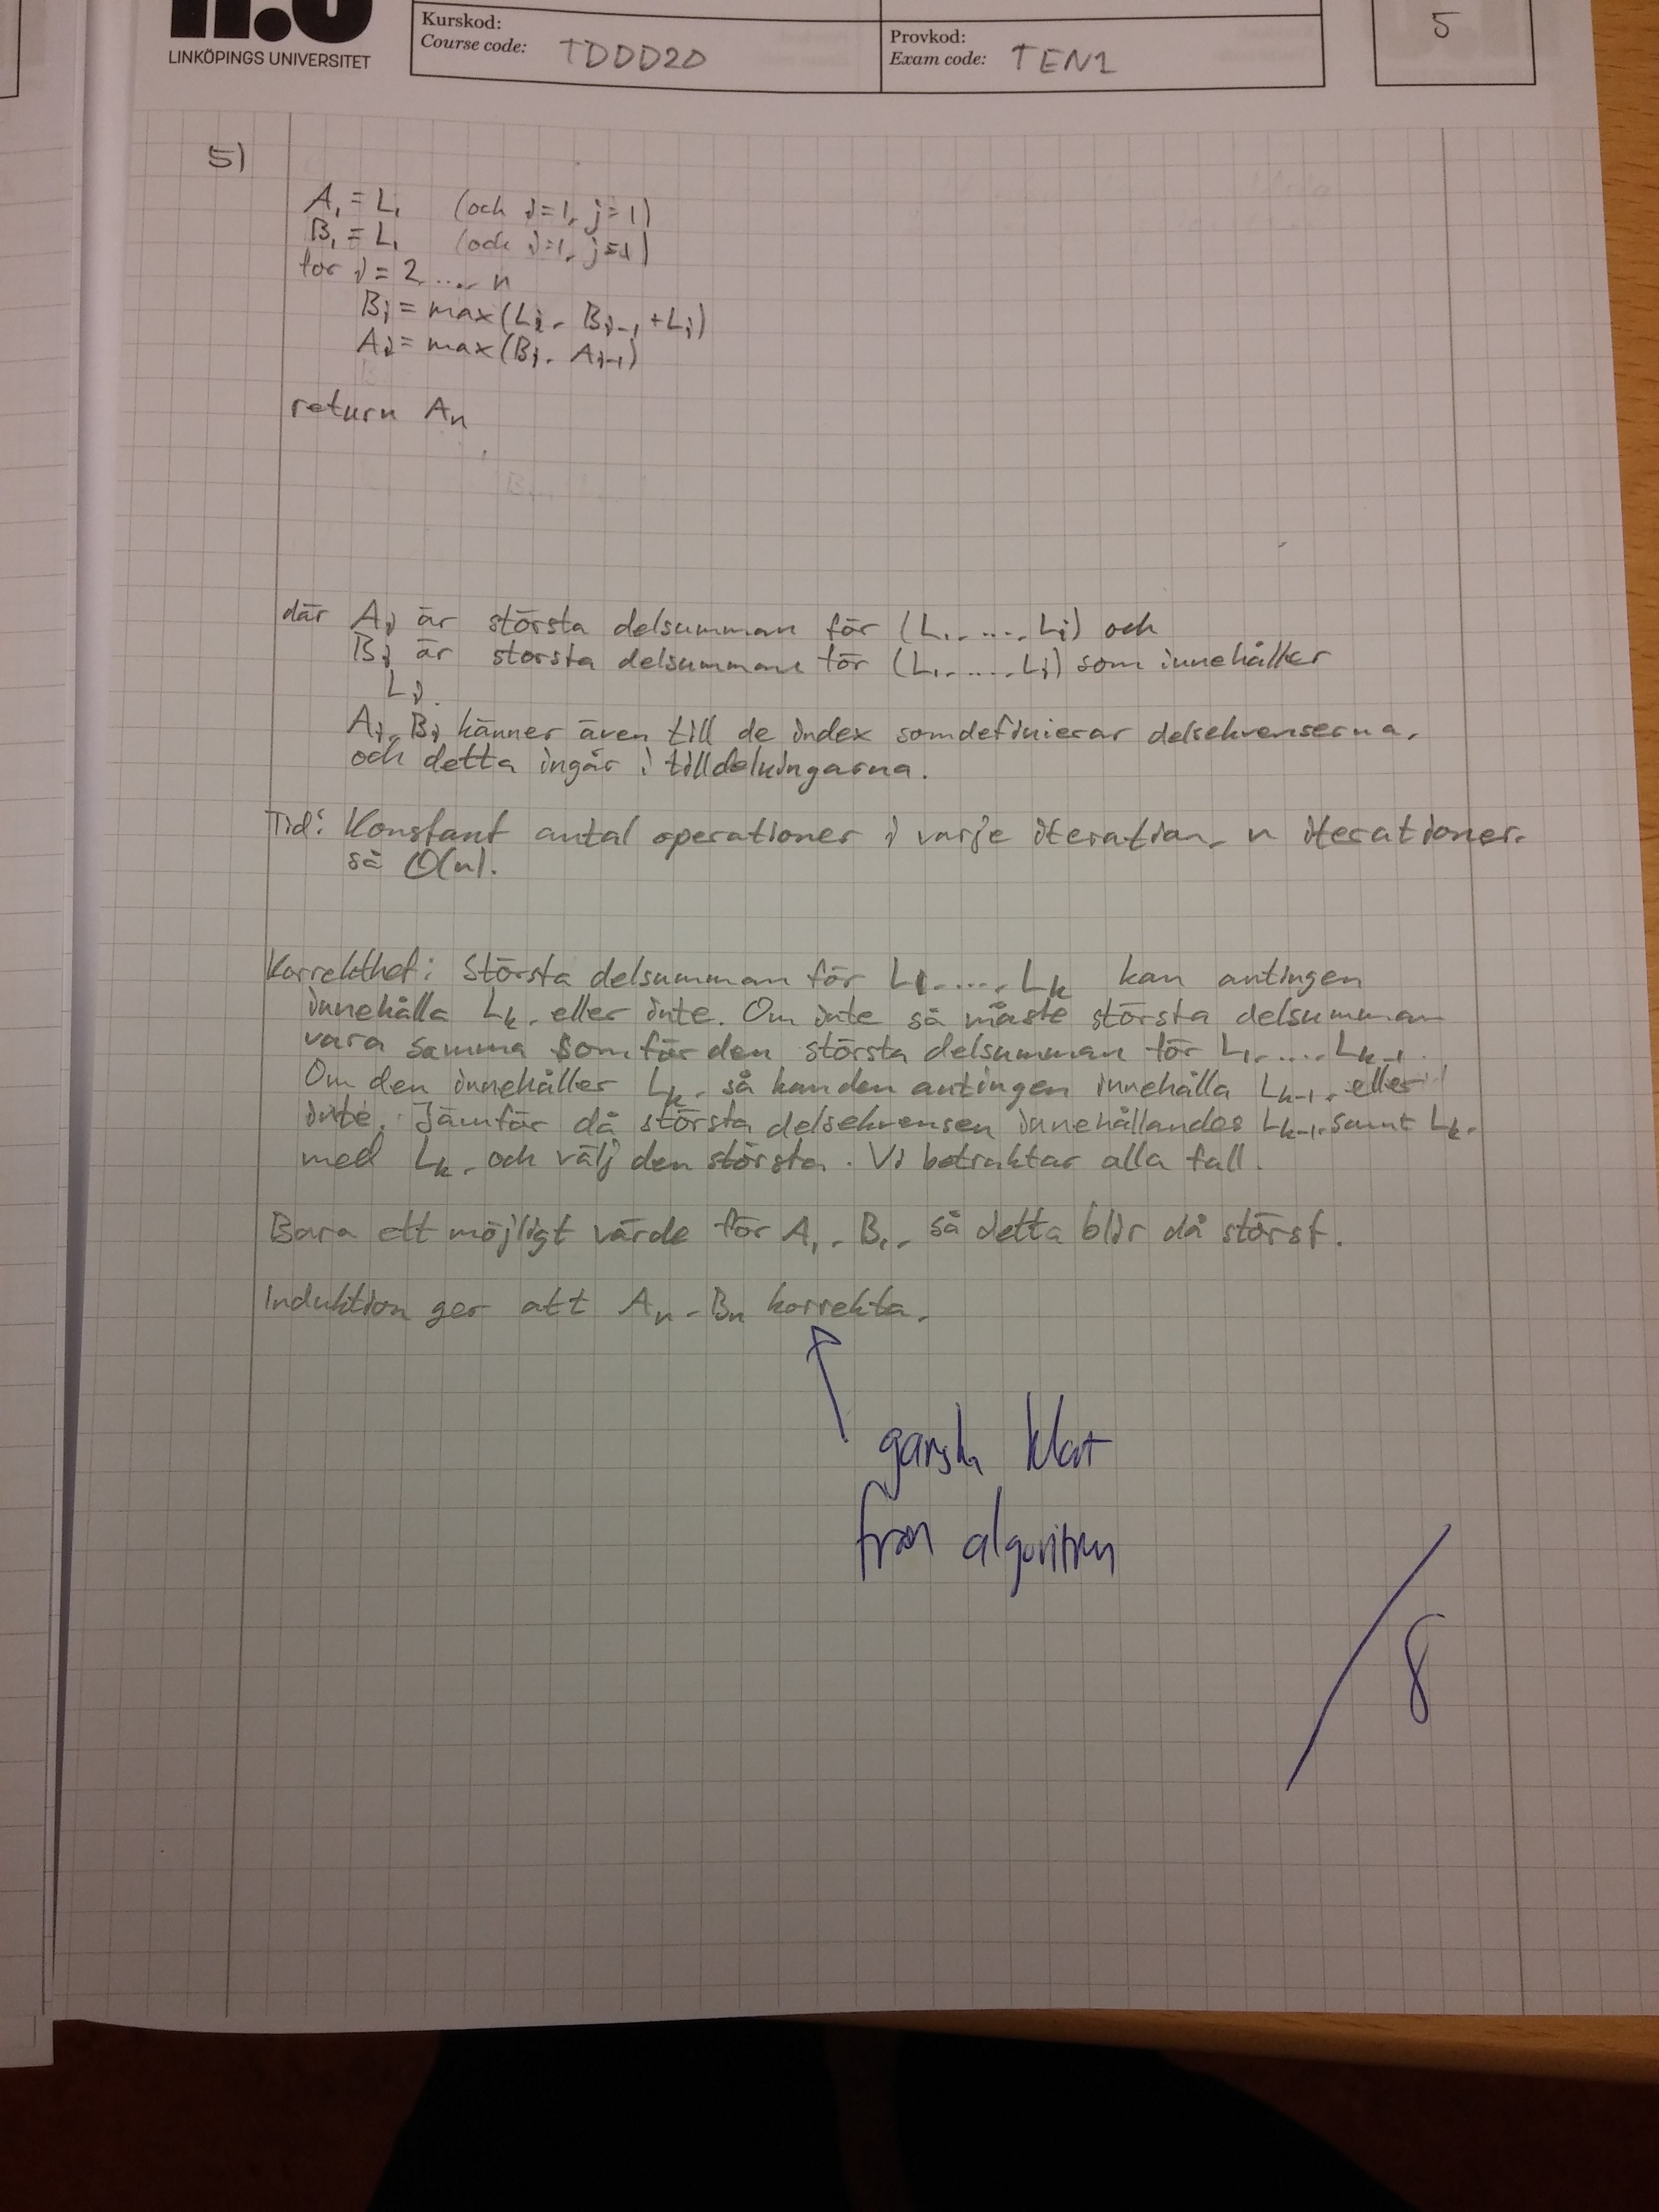 LINKÖPINGS UNIVERSITET
Kurskod:
Course code: TDDD20
Provkod:
Exam code: TEN1
5
5)
A₁ = L₁ (och i=1, j=1)
B₁ = L₁ (och i=1, j=1)
for i = 2, ..., n
Bi = max(Li, Bi-1 + Li)
Ai = max(Bi, Ai-1)
return An
där Ai är största delsumman för (L₁, ..., Li) och
Bi är största delsumman för (L₁, ..., Li) som innehåller
Li.
Ai, Bi känner även till de index som definierar delsekvenserna,
och detta ingår i tilldelningarna.
Tid: Konstant antal operationer i varje iteration, n iterationer,
så O(n).
Korrekthet: Största delsumman för L1, ..., Lk kan antingen
innehålla Lk, eller inte. Om inte så måste största delsumman
vara samma som för den största delsumman för L₁, ..., Lk-1.
Om den innehåller Lk, så kan den antingen innehålla Lk-1, eller
inte. Jämför då största delsekvensen innehållandes Lk-1, samt Lk,
med Lk, och välj den största. Vi betraktar alla fall.
Bara ett möjligt värde för A₁, B₁, så detta blir då störst.
Induktion ger att An, Bn korrekta.
ganska klart
från algoritmen
/8